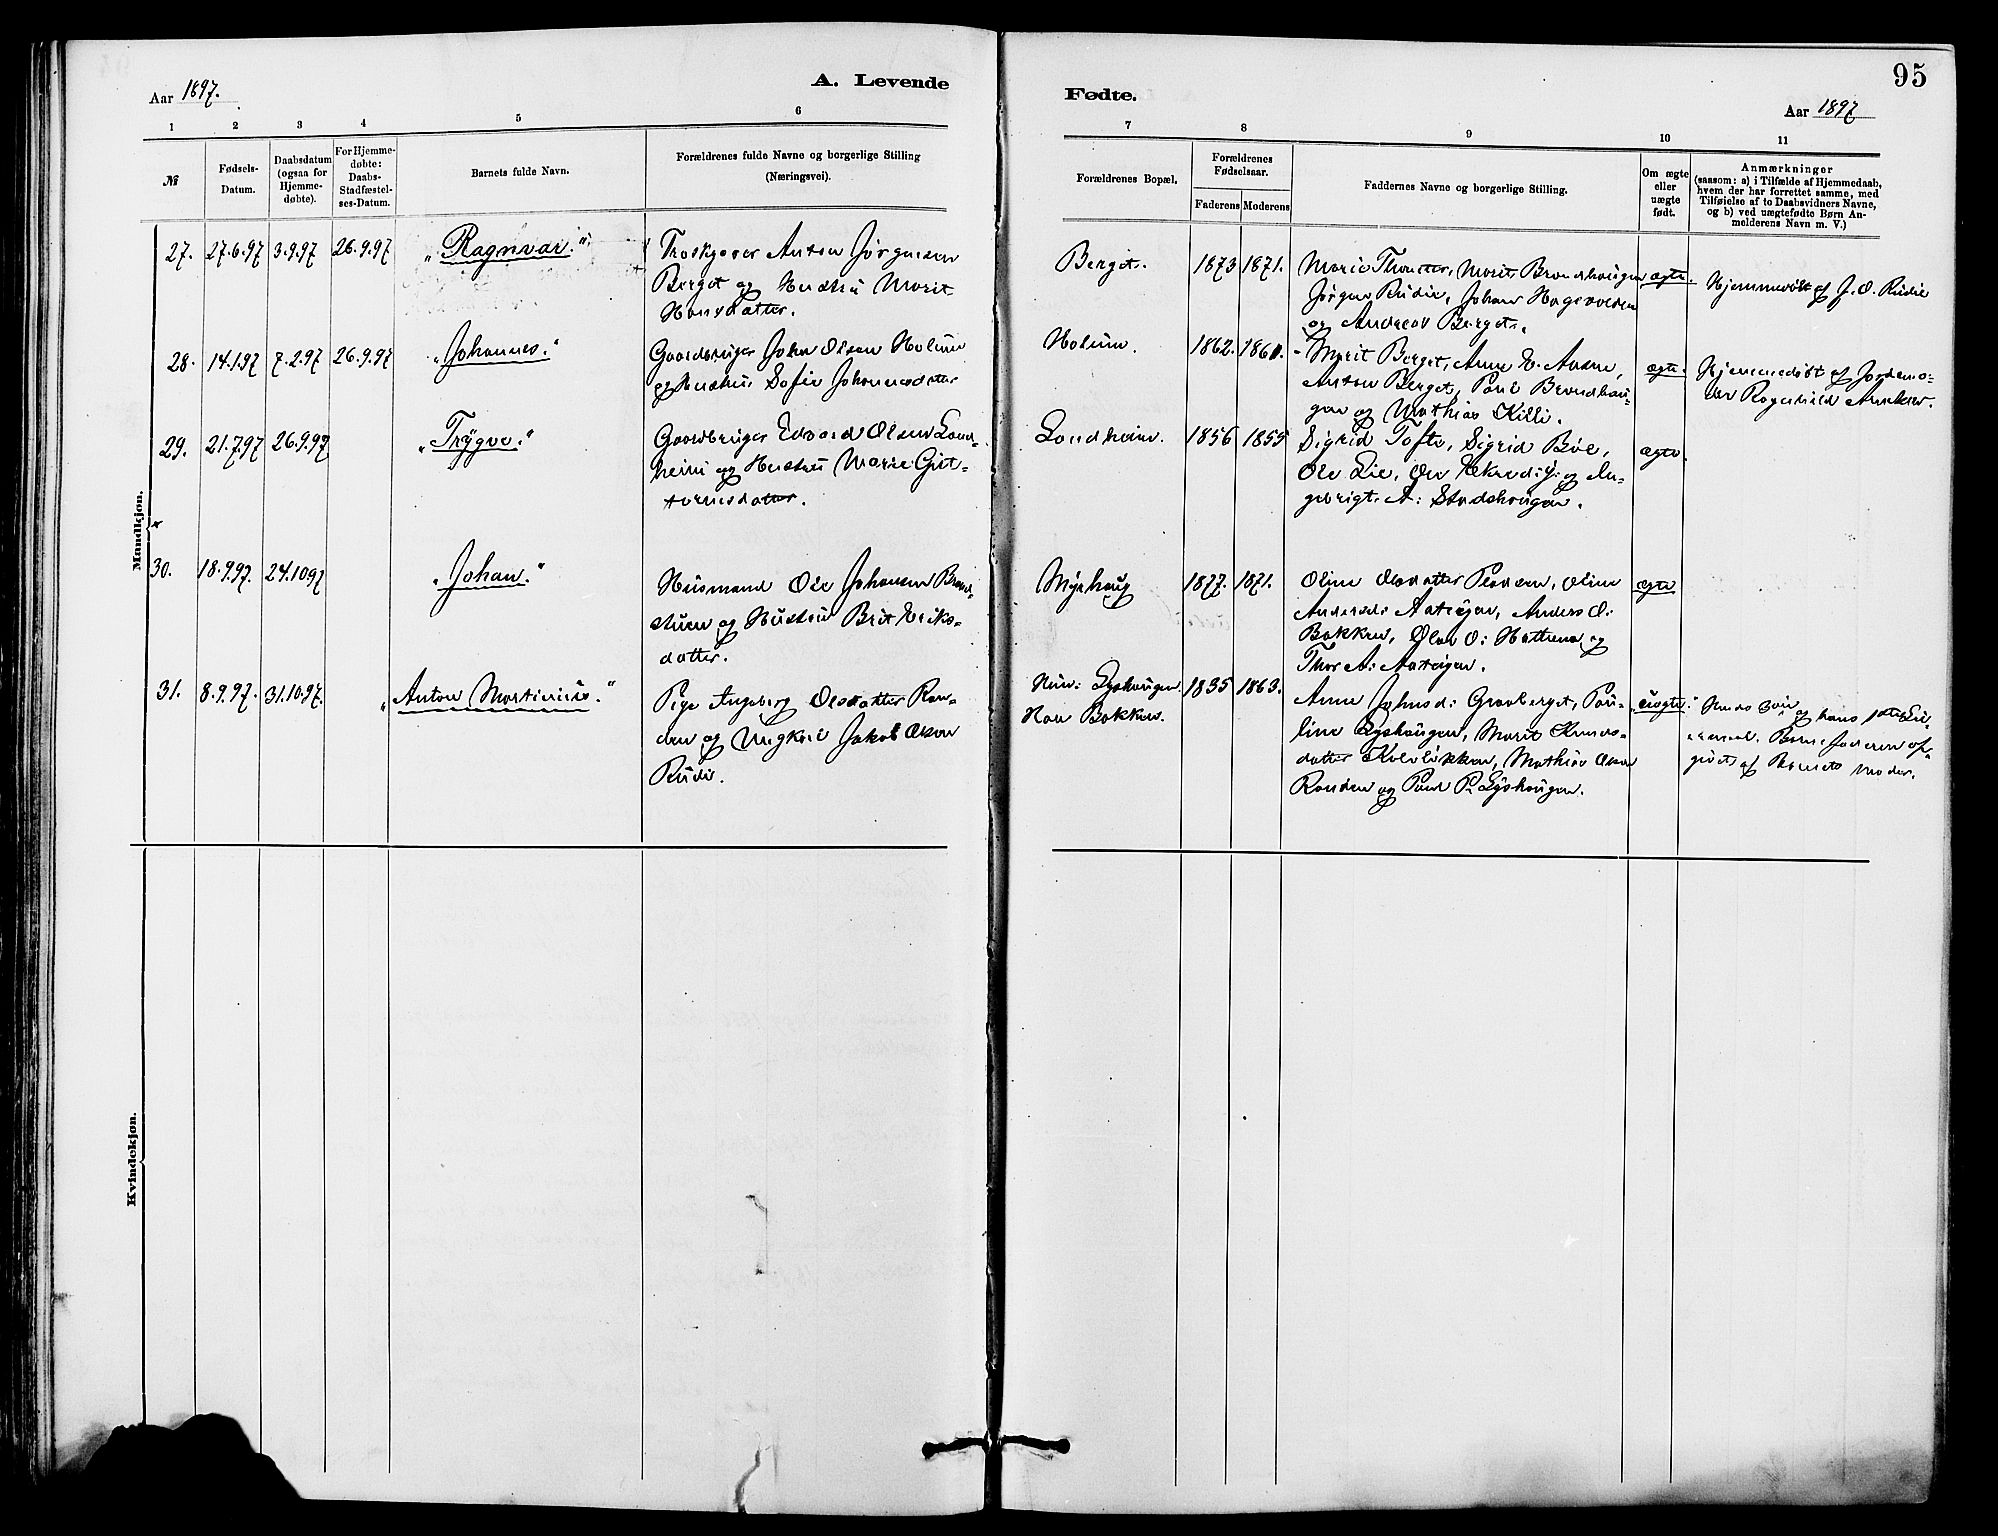 95
Aar 1897.
A. Levende
Fødte.
Aar 1897
1 2 3 4 5 6
7 8 9 10 11
№
Fødsels-
Datum.
Daabsdatum
(ogsaa for
Hjemme-
døbte).
For Hjemme-
døbte:
Daabs-
Stadfæstel-
ses-Datum.
Barnets fulde Navn.
Forældrenes fulde Navne og borgerlige Stilling
(Næringsvei).
Forældrenes Bopæl.
Forældrenes
Fødselsaar.
Faderens Moderens
Faddernes Navne og borgerlige Stilling.
Om ægte
eller
uægte
født.
Anmærkninger
(saasom: a) i Tilfælde af Hjemmedaab,
hvem der har forrettet samme, med
Tilføielse af to Daabsvidners Navne,
og b) ved uægtefødte Børn An-
melderens Navn m. V.)
Mandkjøn.
27. 27.6.97 3.9.97 26.9.97 "Ragnvar."
Anton Jørgensen
Berget og Hustru Marit
Hansdatter.
Berget. 1873 1871.
Jørgen Rudie, Johan
og Andreas Berget.
ægte.
Hjemmedøbt af J. O. Rudie
28. 14.1.97 7.2.97 26.9.97 "Johannes."
Gaardbruger John Olsen Holum
og Hustru Sofie Johannesdatter
Holum. 1862. 1861.
Marit Berget, Anne
Anton Berget, Paul Brændhau-
gen og Mathias Killi.
ægte.
Hjemmedøbt af Jordemo-
der Ragnhild
29. 21.7.97 26.9.97 "Trygve."
Gaardbruger Edvard Olsen Land-
heim og Hustru Marie Gut-
tormsdatter.
Landheim. 1856 1855
Sigrid Tofte, Sigrid Bøe,
Ole Lie, Ole og In-
gebrigt A: Stadshaugen.
ægte.
30. 18.9.97. 24.10.97 "Johan."
Husmand Ole Johansen
stuen og Hustru Brit Eriks-
datter.
Myrhaug 1877. 1871.
Oline Olsdatter Pladsen, Oline
Andersd: Aateigen, Anders O:
Bakken, Olav O: og
Thor A: Aateigen.
ægte
31. 8.9.97. 31.10.97. "Anton Martinius."
Pige Ingeborg Olsdatter Ran-
den og Ungkarl Jakob Olsen
Rudi.
Hun: Lyshaugen
Han Bakken.
1835 1863.
Anne Johnsd: Graaberget, Pau-
line Lyshaugen, Marit Knuds-
datter Mathias Olsen
Randen og Paul P. Lyshaugen.
"uægte."
og hans
Barnefaderen op-
givet af Barnets Moder.
Kvindekjøn.